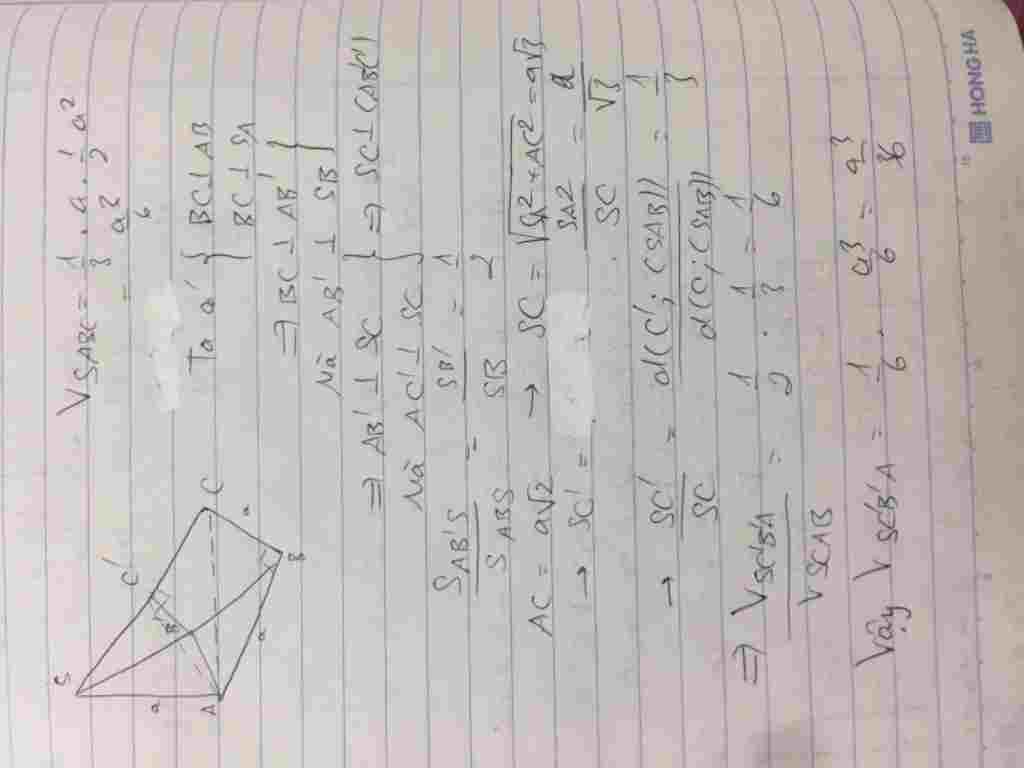 S
a
A
B'
C'
C
a
B
a
V SABC = 1/3 . a . 1/2 a²
= a³/6
Ta có { BC ⊥ AB
BC ⊥ SA
⇒ BC ⊥ AB' }
Mà AB' ⊥ SB }
⇒ AB' ⊥ SC }
Mà AC' ⊥ SC } ⇒ SC ⊥ (AB'C')
S AB'S / S ABS = SB' / SB = 1/2
AC = a√2 → SC = √(a² + AC²) = a√3
→ SC' = SA2 / SC = a / √3
→ SC' / SC = d(C'; (SAB)) / d(C; (SAB)) = 1/3
⇒ V SC'B'A / V SCAB = 1/2 . 1/3 = 1/6
Vậy V SC'B'A = 1/6 . a³/6 = a³/36
HONG HA